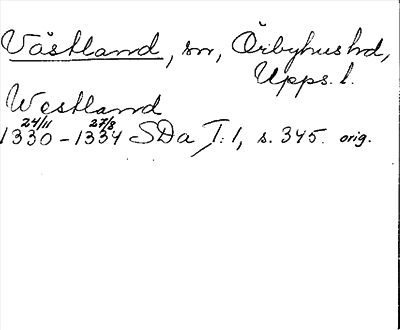 Västland, sn, Örbyhus hd,
Upps. l.
Westland
24/11 27/8
1330 - 1334 SDa T: 1, s. 345. orig.